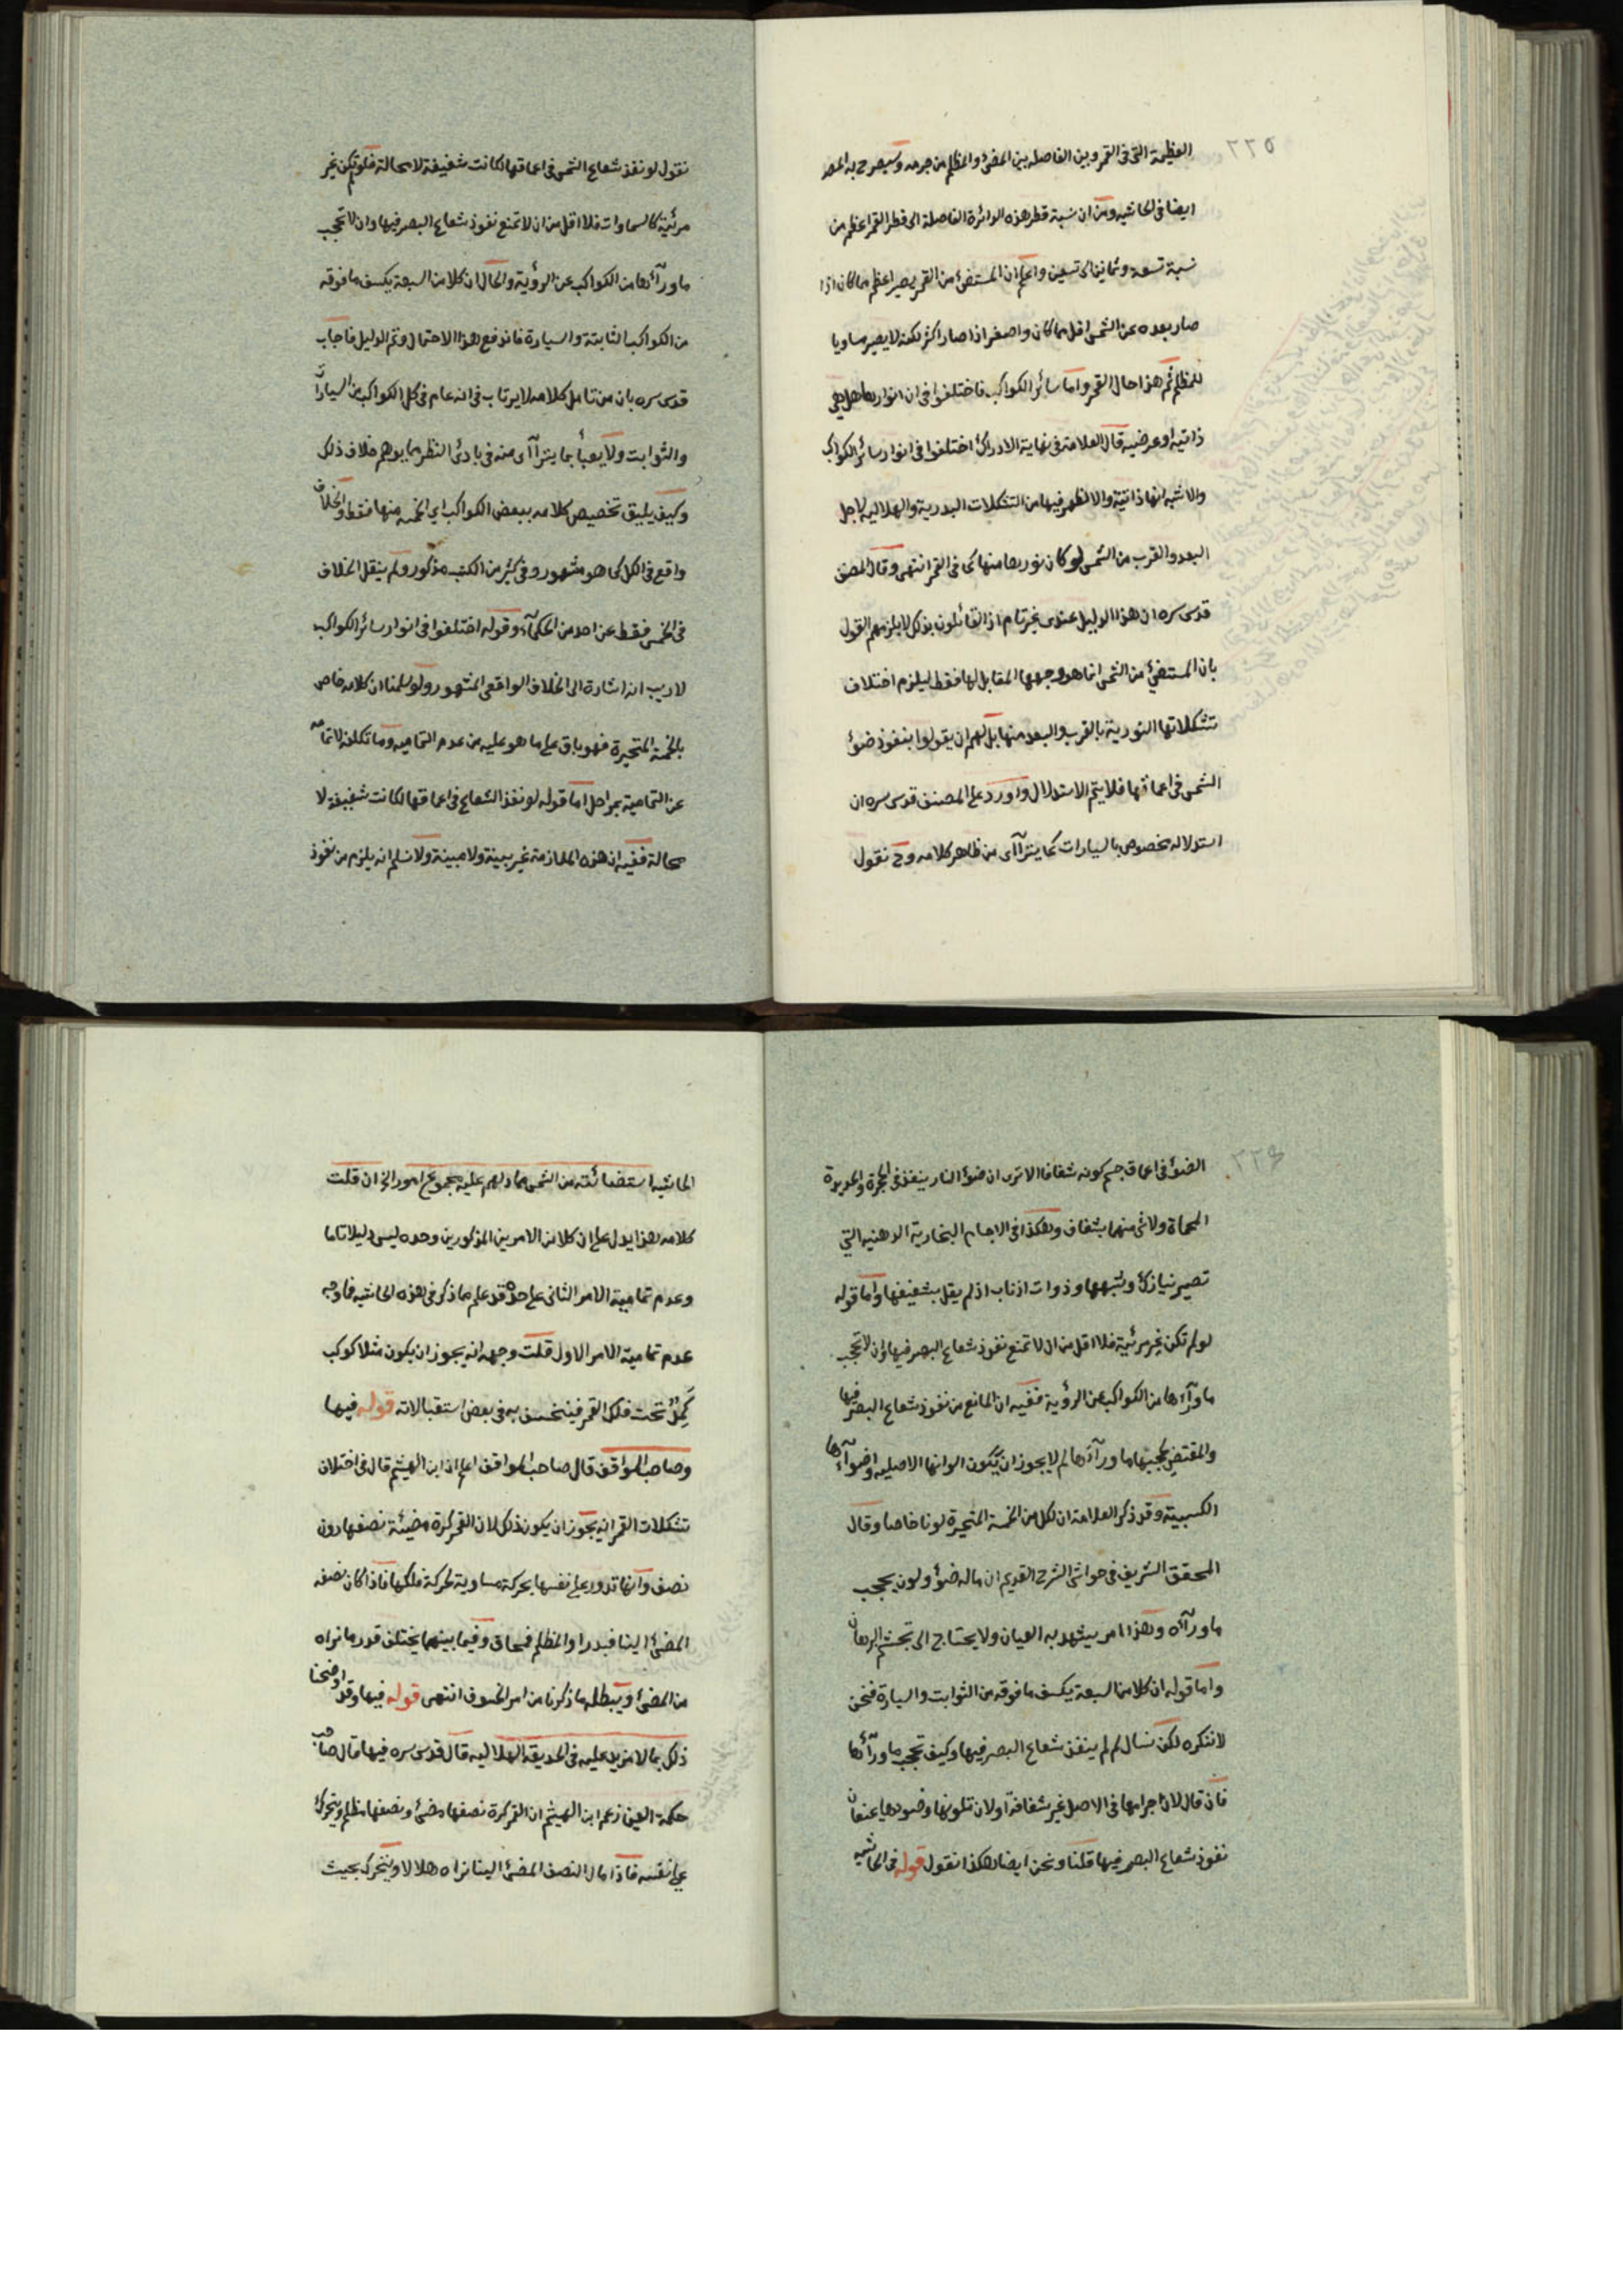 ٢٢٥
العظيمة التى فى القمر وبين الفاصله بين المضئ والمظلم من جرمه وسيصرح به المصـ
ايضا فى الحاشيه ومن ان نسبة قطر هذه الدائرة الفاصلة الى قطر القمر اعظم من
نسبة تسعة وثمانين الى تسعين واعلم ان المستضئ من القمر يصير اعظم مما كان اذا
صار بعده عن الشمس اقل مما كان واصغر اذا صار اكثر لكنه لا يصير مساويا
للمظلم ثم هذا حال القمر واما سائر الكواكب فاختلفوا فى ان انوارها هل هى
ذاتيه او عرضيه قال العلامة فى نهاية الادراك اختلفوا فى انوار سائر الكواكب
والاشبه انها ذاتية والا لظهر فيها من التشكلات البدرية والهلاليه لاجل
البعد والقرب من الشمس لو كان نورها منها كما فى القمر انتهى وقال المصنف
قدس سره ان هذا الدليل عندى غير تام اذ القائلون بذلك لا يلزمهم القول
بان المستضئ من الشمس انما هو وجهها المقابل لها فقط ليلزم اختلاف
تشكلاتها النورية بالقرب والبعد منها بل لهم ان يقولوا بنفوذ ضوء
الشمس فى اعماقها فلا يتم الاستدلال واورد على المصنف قدس سره ان
استدلاله مخصوص بالسيارات كما يتراآى من ظاهر كلامه وح نقول
نقول لو نفذ شعاع الشمس فى اعماقها لكانت شفيفة لا محالة فلو لم تكن غير
مرئية كالسماوات فلا اقل من ان لا تمنع نفوذ شعاع البصر فيها وان لا تحجب
ما ورآئها من الكواكب عن الرؤية والحال ان كلا من السبعة يكسف ما فوقه
من الكواكب الثابتة والسيارة فاندفع هذا الاحتمال وتم الدليل فاجاب
قدس سره بان من تامل كلامه لا يرتاب فى انه عام فى كل الكواكب من السيارات
والثوابت ولا يعبأ بما يتراآى منه فى بادئ النظر مما يوهم خلاف ذلك
وكيف يليق تخصيص كلامه ببعض الكواكب اى الخمسه منها فقط والخلاف
واقع فى الكل كما هو مشهور وفى كثير من الكتب مذكور ولم ينقل الخلاف
فى الخمس فقط عن احد من الحكمآء وقوله اختلفوا فى انوار سائر الكواكب
لا ريب انه اشارة الى الخلاف الواقعى المشهور ولو سلمنا ان كلامه خاص
بالخمسة المتحيرة فهو باق على ما هو عليه من عدم التماميه وما تكلفه لاتمامه
عن التمامية بمراحل اما قوله لو نفذ الشعاع فى اعماقها لكانت شفيفة لا
محالة ففيه ان هذه الملازمة غير بينة ولا مبينة ولا نسلم انه يلزم من نفوذ
٢٢٦
الضوء فى اعماق جسم كونه شفافا الا ترى ان ضوء النار ينفذ فى الجمرة والحديدة
المحماة ولا شئ منهما بشفاف وهكذا فى الاجسام البخارية الدهنيه التي
تصير نيازك وشبهها وذوات اذناب اذ لم يقل بشفيفها واما قوله
لو لم تكن غير مرئية فلا اقل من ان لا تمنع نفوذ شعاع البصر فيها وان لا تحجب
ما ورآءها من الكواكب عن الرؤية ففيه ان المانع من نفوذ شعاع البصر فيها
والمقتضى لحجبها ما ورآئها لم لا يجوز ان يكون الوانها الاصليه واضوآءها
الكسبية وقد ذكر العلامة ان لكل من الخمسة المتحيرة لونا خاصا وقال
المحقق الشريف فى حواشى الشرح القديم ان ماله ضوء ولون يحجب
ما ورآءه وهذا امر يشهد به العيان ولا يحتاج الى تجشم البرهان
واما قوله ان كلا من السبعة يكسف ما فوقه من الثوابت والسيارة فنحن
لا ننكره لكن نسال لم لم ينفذ شعاع البصر فيها وكيف تحجب ما ورآئها
فان قال لان اجرامها فى الاصل غير شفافة او لان تلونها وضوءها يمنعان
نفوذ شعاع البصر فيها قلنا ونحن ايضا هكذا نقول قوله فى الحاشيه
الحاشيه استضائته من الشمس مما دلهم عليه مجموع امور الخ ان قلت
كلامه هذا يدل على ان كلا من الامرين المذكورين وحده ليس دليلا تاما
وعدم تمامية الامر الثانى على حدة قد علم مما ذكر فى هذه الحاشيه فما وجه
عدم تمامية الامر الاول قلت وجهه انه يجوز ان يكون مثلا كوكب
كمد تحت فلك القمر فينخسف به فى بعض استقبالاته قوله فيها
وصاحب المواقف قال صاحب المواقف اعلم ان ابن الهيثم قال فى اختلاف
تشكلات القمر انه يجوز ان يكون ذلك لان القمر كرة مضيئة نصفها دون
نصف وانها تدور على نفسها بحركة مساوية لحركة فلكها فاذا كان نصفه
المضئ الينا فبدرا والمظلم فمحاق وفيما بينهما يختلف قدر ما نراه
من المضئ ويبطله ما ذكرنا من امر الخسوف انتهى قوله فيها وقد اوضحنا
ذلك بما لا مزيد عليه فى الحديقة الهلاليه قال قدس سره فيها قال صاحب
حكمة العين زعم ابن الهيثم ان القمر كرة نصفها مضئ ونصفها مظلم ويتحرك
على نفسه فاذا مال النصف المضئ الينا نراه هلالا ويتحرك بحيث